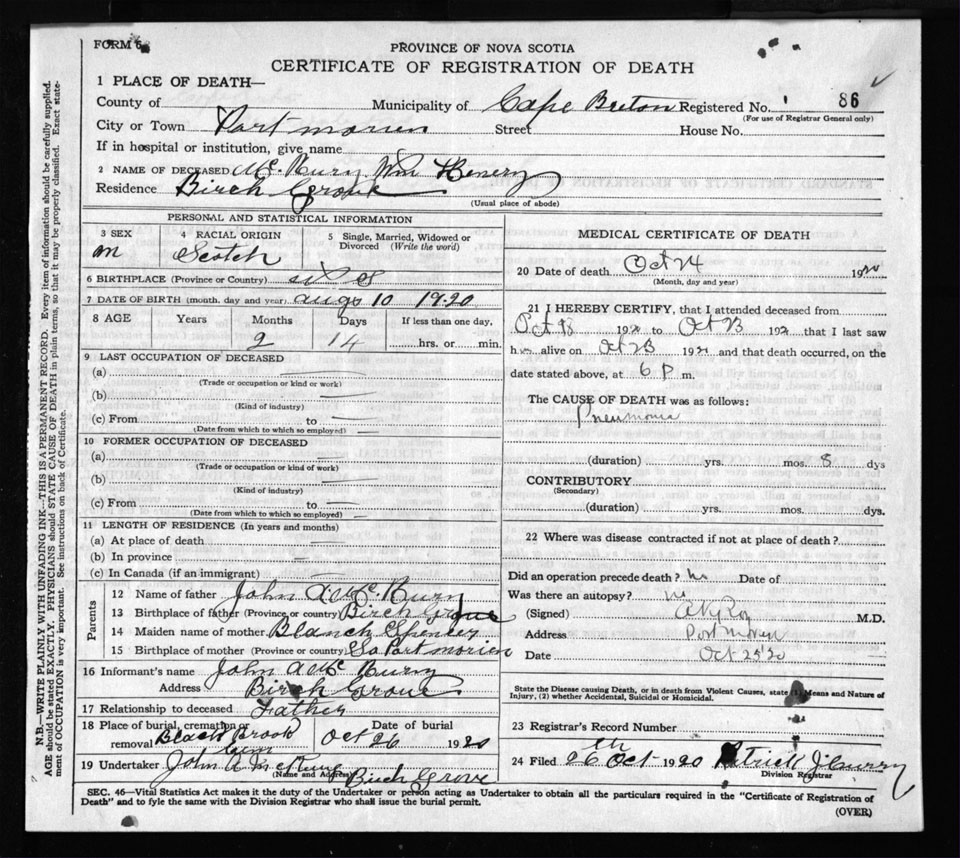 FORM 6
PROVINCE OF NOVA SCOTIA
CERTIFICATE OF REGISTRATION OF DEATH
1 PLACE OF DEATH—
County of Municipality of Cape Breton Registered No. 86
(For use of Registrar General only)
City or Town Port morien Street House No.
If in hospital or institution, give name
2 NAME OF DECEASED Wm Henery
Residence Birch Grove
(Usual place of abode)
PERSONAL AND STATISTICAL INFORMATION
3 SEX 4 RACIAL ORIGIN 5 Single, Married, Widowed or Divorced (Write the word)
m Scotch
6 BIRTHPLACE (Province or Country)
7 DATE OF BIRTH (month, day and year) augs 10 1920
8 AGE Years Months Days If less than one day,
2 14 hrs. or min.
9 LAST OCCUPATION OF DECEASED
(a)
(Trade or occupation or kind or work)
(b)
(Kind of industry)
(c) From to
(Date from which to which so employed)
10 FORMER OCCUPATION OF DECEASED
(a)
(Trade or occupation or kind of work)
(b)
(Kind of industry)
(c) From to
(Date from which to which so employed)
11 LENGTH OF RESIDENCE (In years and months)
(a) At place of death
(b) In province
(c) In Canada (if an immigrant)
Parents
12 Name of father John A
13 Birthplace of father (Province or country) Birch Grove
14 Maiden name of mother Blanch Spencer
15 Birthplace of mother (Province or country) Port morien
16 Informant's name John A
Address Birch Grove
17 Relationship to deceased Father
18 Place of burial, cremation or removal Black Brook Cem Date of burial Oct 26 1920
19 Undertaker John A
(Name and Address) Birch Grove
MEDICAL CERTIFICATE OF DEATH
20 Date of death Oct 24 1920
(Month, day and year)
21 I HEREBY CERTIFY, that I attended deceased from
Oct 18 192 to Oct 23 192 that I last saw
h alive on Oct 23 192 and that death occurred, on the
date stated above, at 6 P m.
The CAUSE OF DEATH was as follows:
Pneumonia
(duration) yrs. mos. 8 dys
CONTRIBUTORY
(Secondary)
(duration) yrs. mos. dys.
22 Where was disease contracted if not at place of death?
Did an operation precede death? no Date of
Was there an autopsy? no
(Signed) M.D.
Address Port Morien
Date Oct 25 20
State the Disease causing Death, or in death from Violent Causes, state (1) Means and Nature of
Injury, (2) whether Accidental, Suicidal or Homicidal.
23 Registrar's Record Number
24 Filed 26th Oct 1920 Patrick J
Division Registrar
SEC. 46—Vital Statistics Act makes it the duty of the Undertaker or person acting as Undertaker to obtain all the particulars required in the "Certificate of Registration of
Death" and to fyle the same with the Division Registrar who shall issue the burial permit.
(OVER)
N.B.—WRITE PLAINLY WITH UNFADING INK—THIS IS A PERMANENT RECORD. Every item of information should be carefully supplied.
AGE should be stated EXACTLY. PHYSICIANS should STATE CAUSE OF DEATH in plain terms, so that it may be properly classified. Exact state-
ment of OCCUPATION is very important. See instructions on back of Certificate.